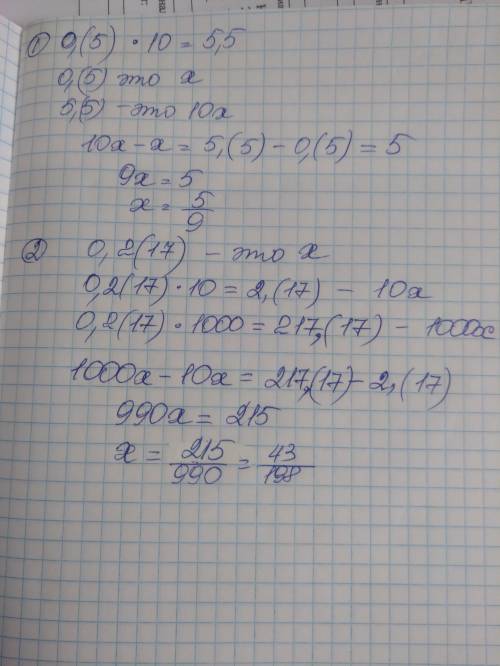 ① 0,(5) · 10 = 5,5
0,(5) это x
5,(5) - это 10x
10x - x = 5,(5) - 0,(5) = 5
9x = 5
x = 5/9
② 0,2(17) - это x
0,2(17) · 10 = 2,(17) - 10x
0,2(17) · 1000 = 217,(17) - 1000x
1000x - 10x = 217,(17) - 2,(17)
990x = 215
x = 215/990 = 43/198